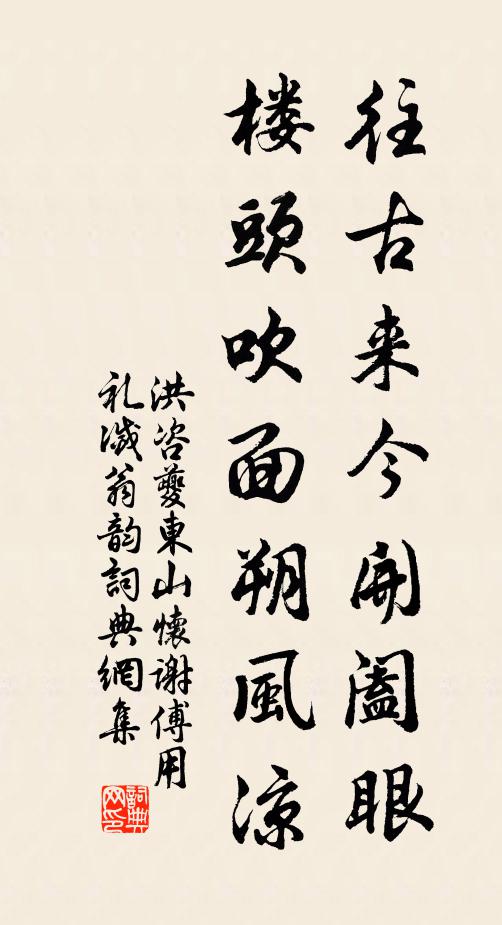 往古来今開阖眼
楼頭吹面朔風凉
洪咨夔東山懷謝傅用
礼灊翁韵詞典網集
詞典
网